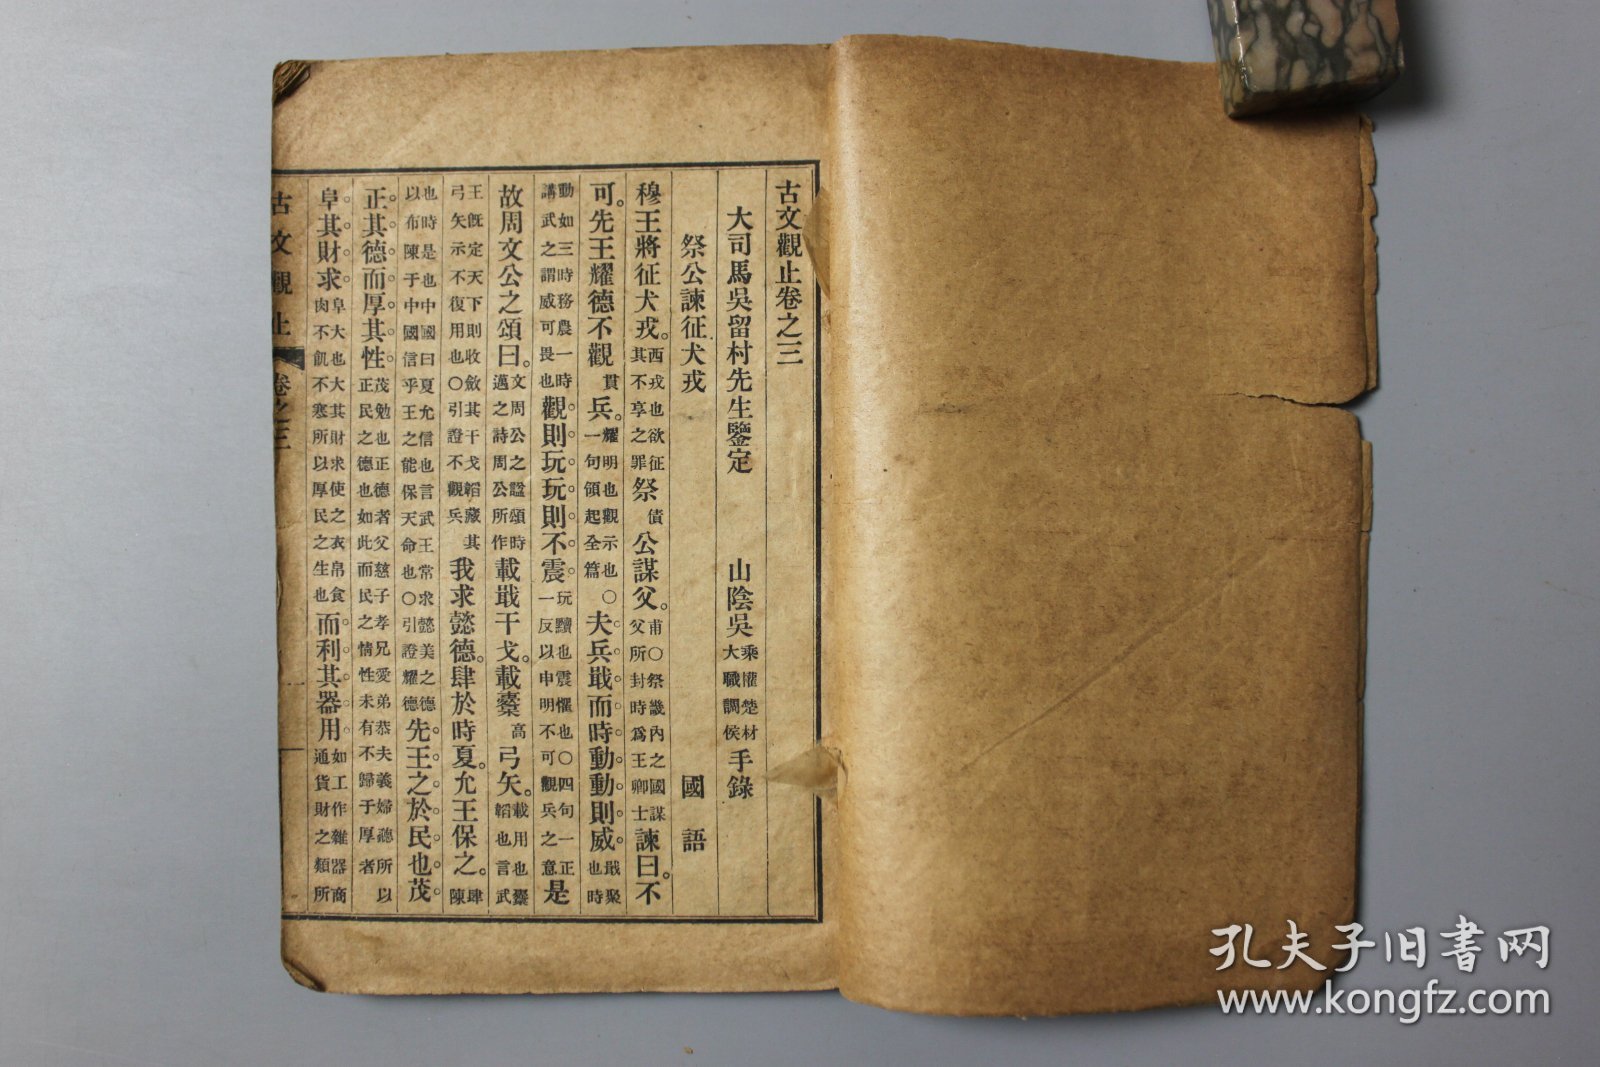 古文觀止卷之三
大司馬吳留村先生鑒定 山陰吳乘權楚材大職調侯手錄
祭公諫征犬戎 國語
穆王將征犬戎。西戎也欲征其不享之罪祭債公謀父。甫○祭畿內之國謀父所封時爲王卿士諫曰。不
可。先王耀德不觀貫兵。耀明也觀示也○一句領起全篇夫兵戢而時動。動則威。戢聚也時
動如三時務農一時講武之謂威可畏也觀則玩。玩則不震。玩黷也震懼也○四句一正一反以申明不可觀兵之意是
故周文公之頌曰。文周公之謚頌時邁之詩周公所作載戢干戈。載櫜高弓矢。載用也櫜韜也言武
王旣定天下則收斂其干戈韜藏其弓矢示不復用也○引證不觀兵我求懿德。肆於時夏。允王保之。肆陳
也時是也中國曰夏允信也言武王常求懿美之德以布陳于中國信乎王之能保天命也○引證耀德先王之於民也。茂
正其德而厚其性。茂勉也正德者父慈子孝兄愛弟恭夫義婦聽所以正民之德也如此而民之情性未有不歸于厚者
阜其財求。阜大也大其財求使之衣帛食肉不飢不寒所以厚民之生也而利其器用。如工作雜器商通貨財之類所
古文觀止 卷之三 一
孔夫子旧書网
www.kongfz.com